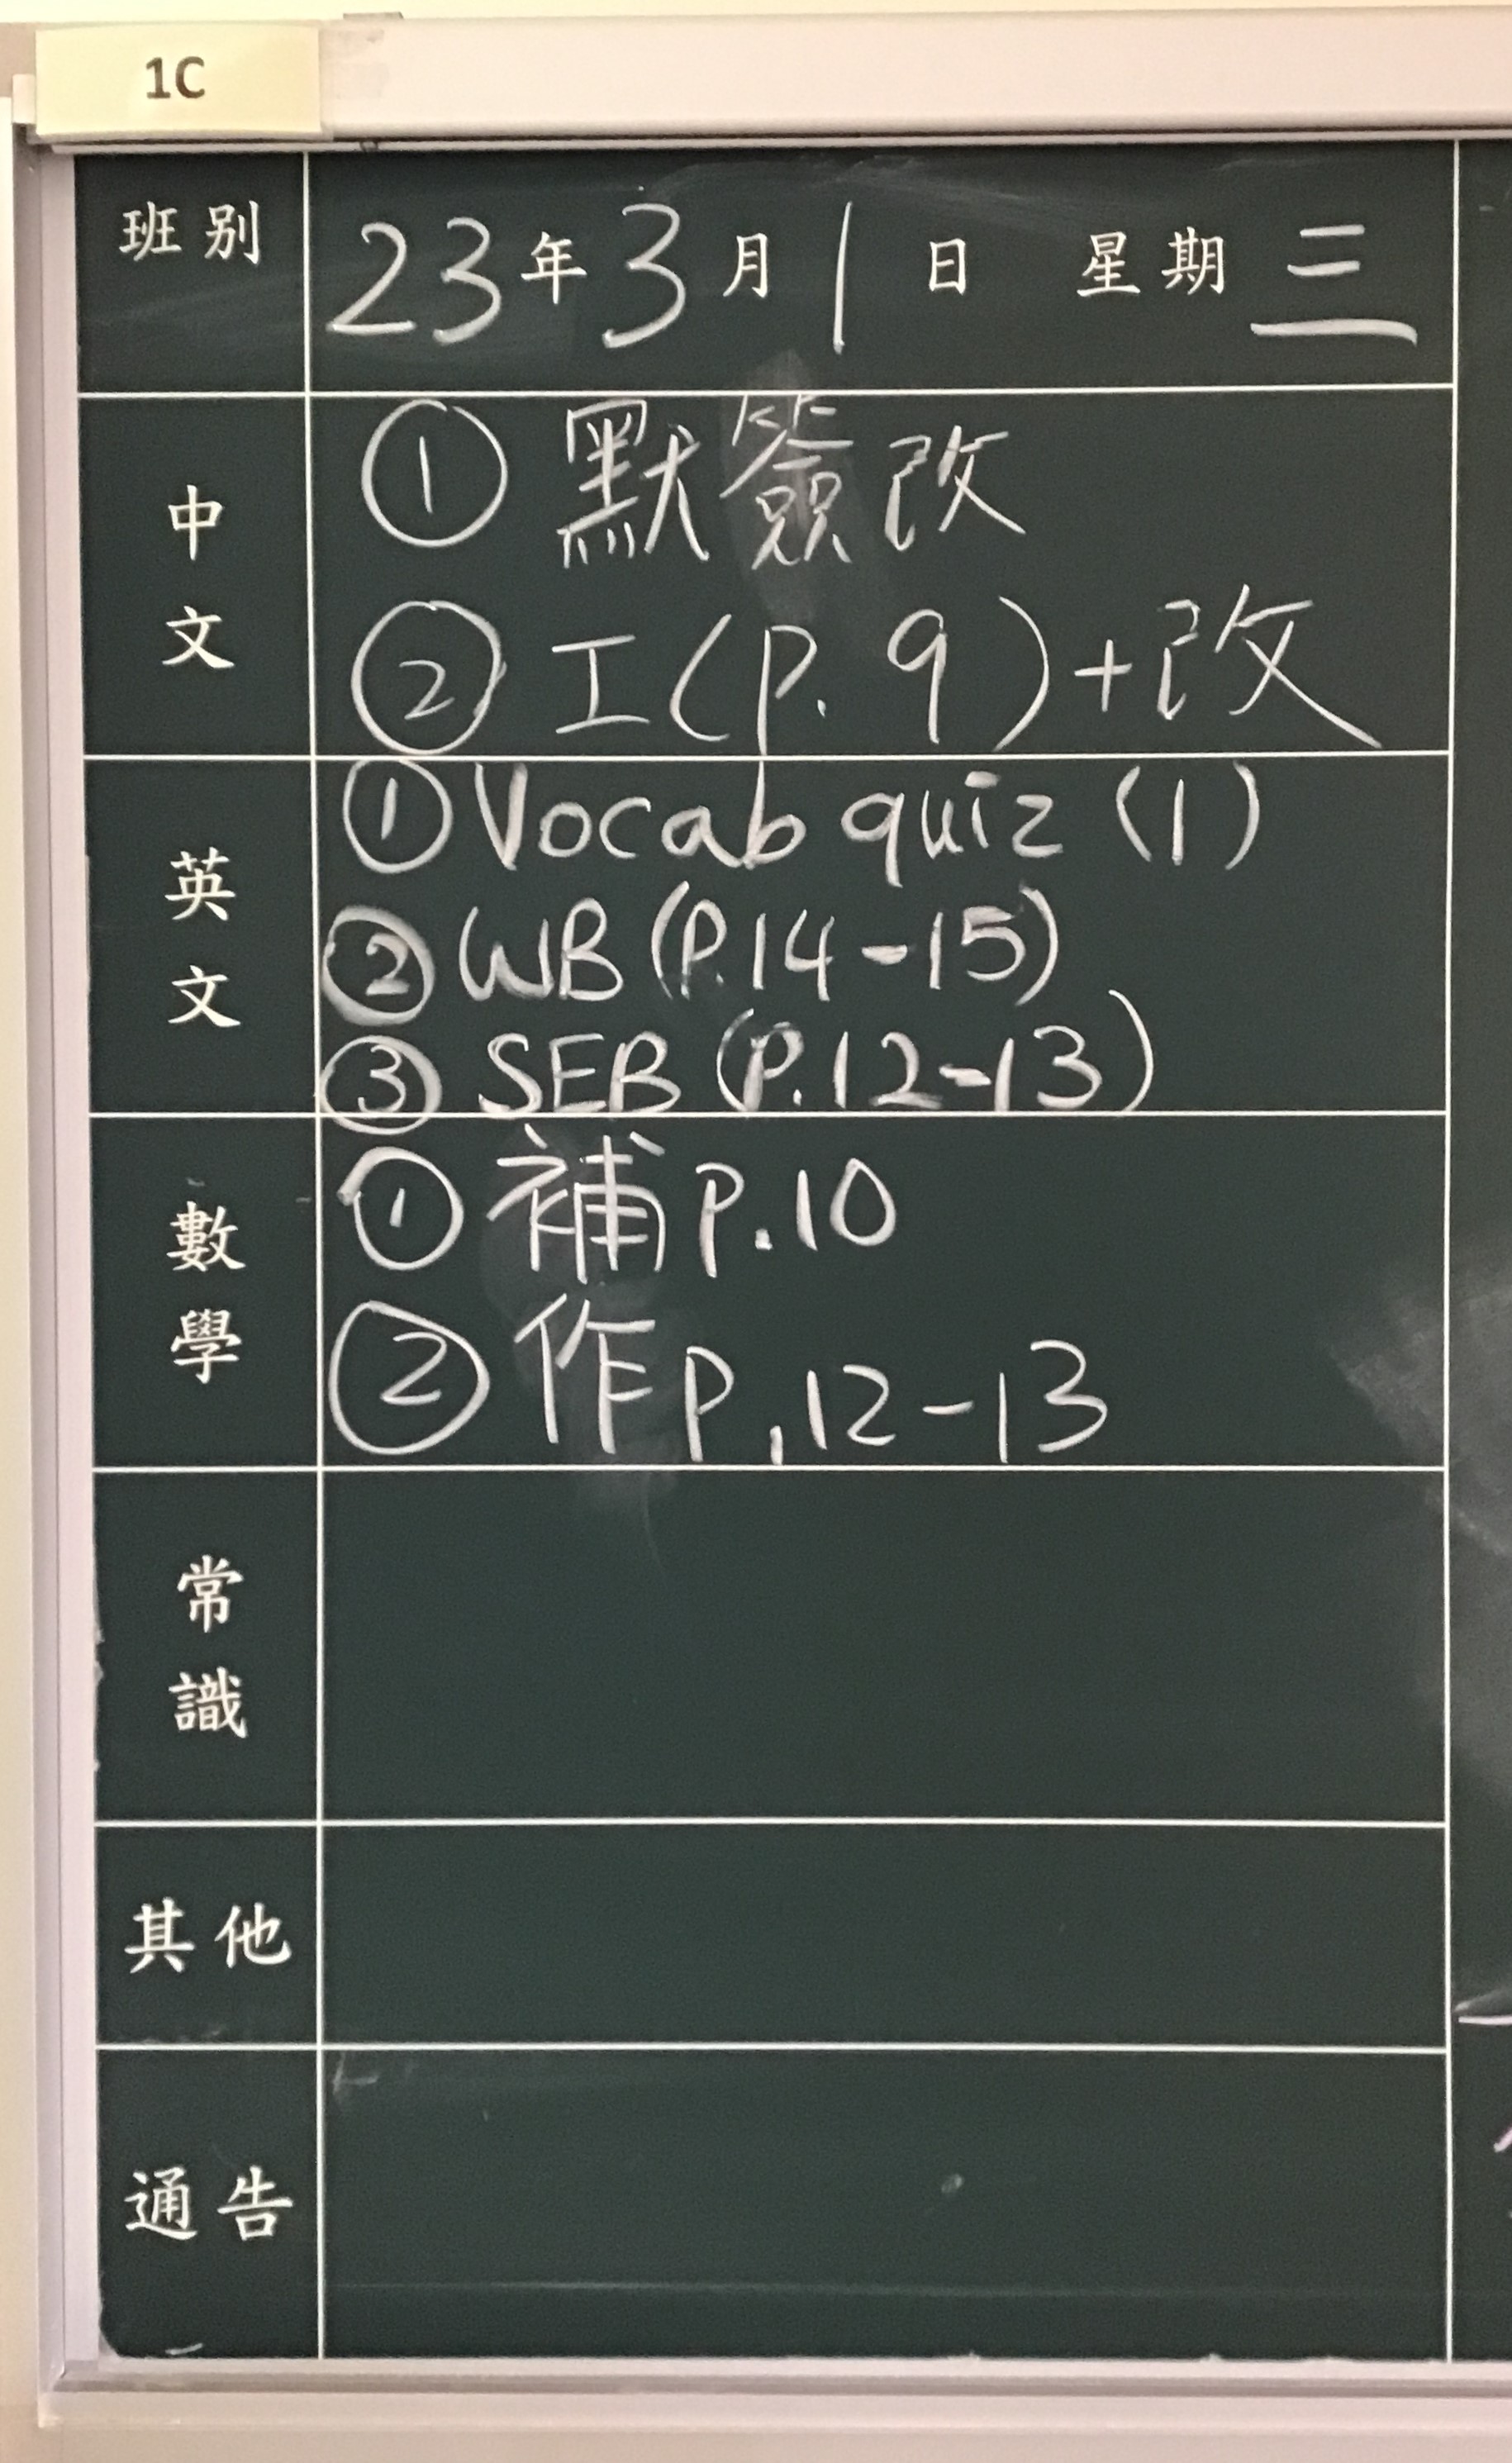 1C
班別 23年3月1日 星期三
中文
① 默簽改
② 工(P.9)+改
英文
① Vocab quiz (1)
② WB (P.14-15)
③ SEB (P.12-13)
數學
① 補 P.10
② 作 P.12-13
常識
其他
通告